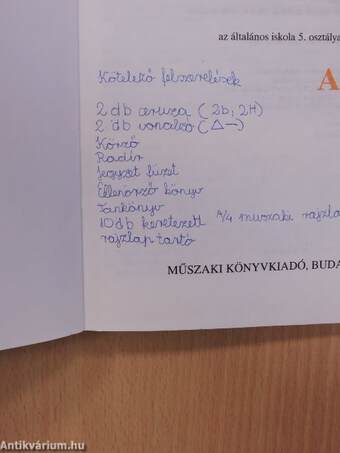 az általános iskola 5. osztálya
Kötelező felszerelések
A
2 db ceruza (2b; 2H)
2 db vonalzó (△—)
Körző
Radír
Jegyzet füzet
Ellenőrző könyv
Tankönyv
10 db keretezett A/4 műszaki rajzla
rajzlap tartó
MŰSZAKI KÖNYVKIADÓ, BUDA
Antikvárium.hu